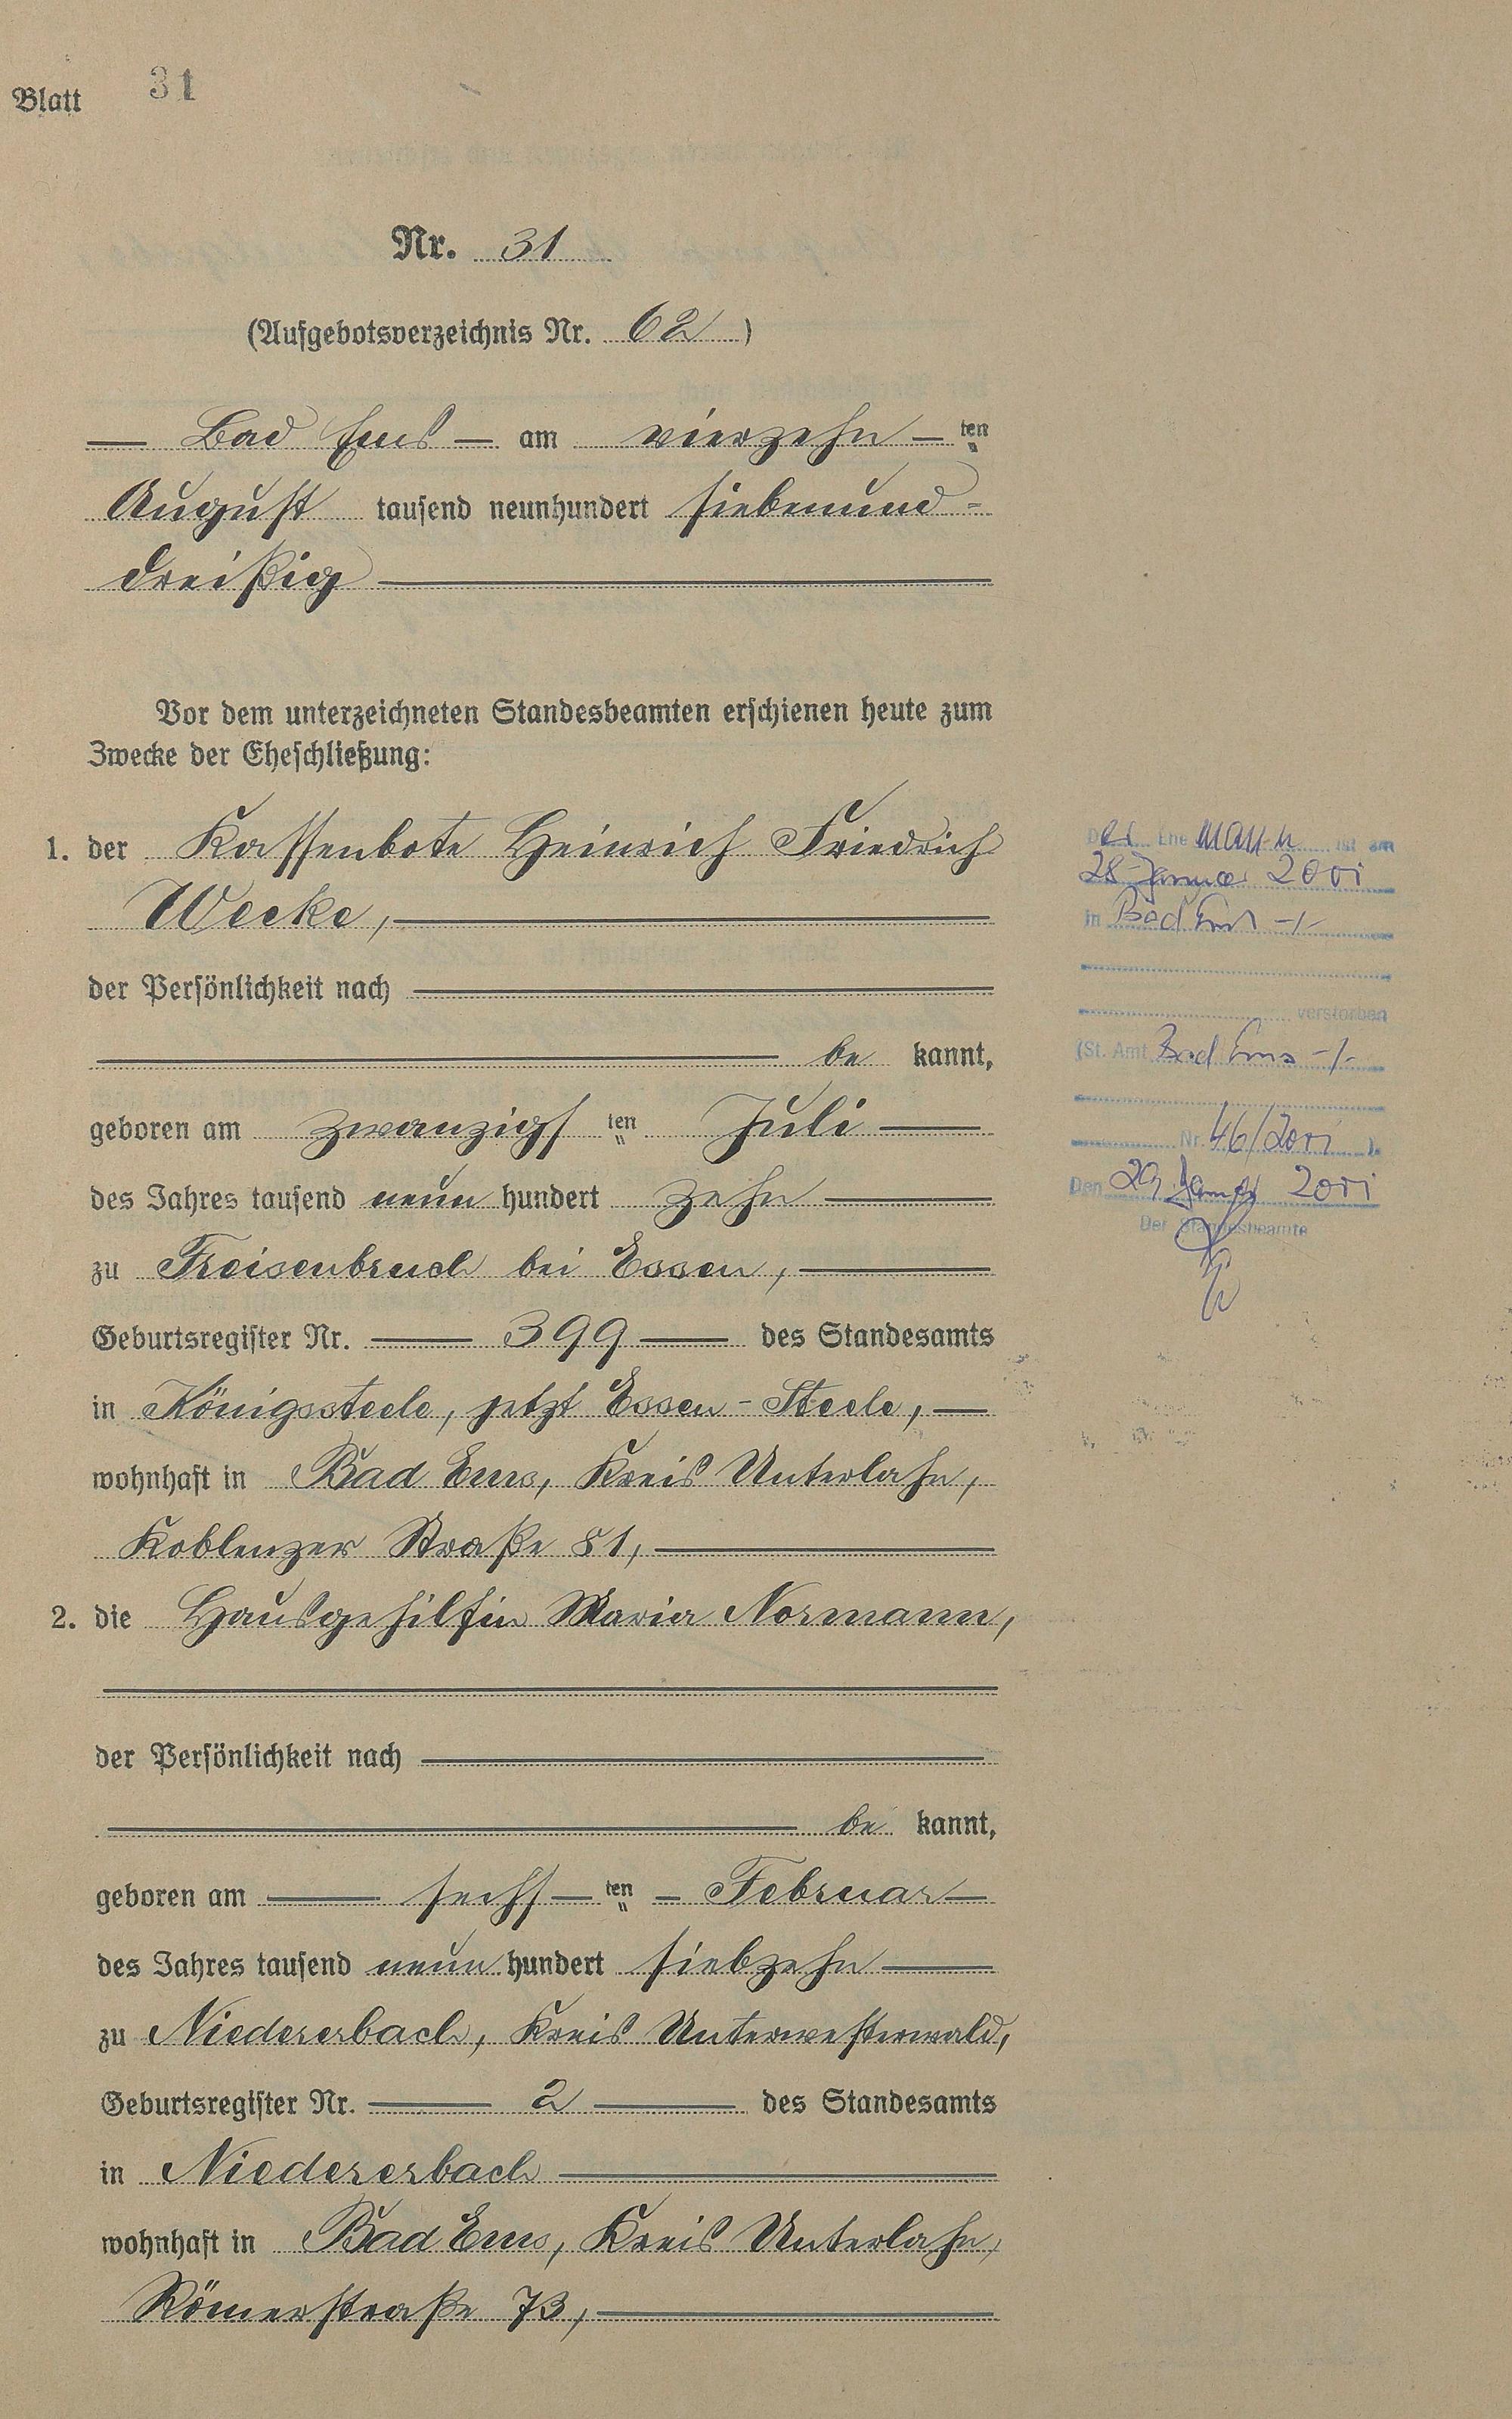 Blatt 31
Nr. 31
(Aufgebotsverzeichnis Nr. 62)
Bad Ems am vierzehn ten
August tausend neunhundert siebenund-
dreißig
Vor dem unterzeichneten Standesbeamten erschienen heute zum
Zwecke der Eheschließung:
1. der Kassenbote Heinrich Friedrich
Wecke,
der Persönlichkeit nach
be kannt,
geboren am zwanzigs ten Juli
des Jahres tausend neun hundert zehn
zu Freisenbruch bei Essen,
Geburtsregister Nr. 399 des Standesamts
in Königssteele, jetzt Essen-Steele,
wohnhaft in Bad Ems, Kreis Unterlahn,
Koblenzer Straße 81,
2. die Hausgehilfin Maria Normann,
der Persönlichkeit nach
be kannt,
geboren am sechs ten Februar
des Jahres tausend neun hundert siebzehn
zu Niedererbach, Kreis Unterwesterwald,
Geburtsregister Nr. 2 des Standesamts
in Niedererbach
wohnhaft in Bad Ems, Kreis Unterlahn,
Römerstraße 73,
Der Ehemann ist am
28. Januar 2001
in Bad Ems -/-
verstorben
(St. Amt Bad Ems -/-
Nr. 46/2001 ).
Den 29. Januar 2001
Der Standesbeamte